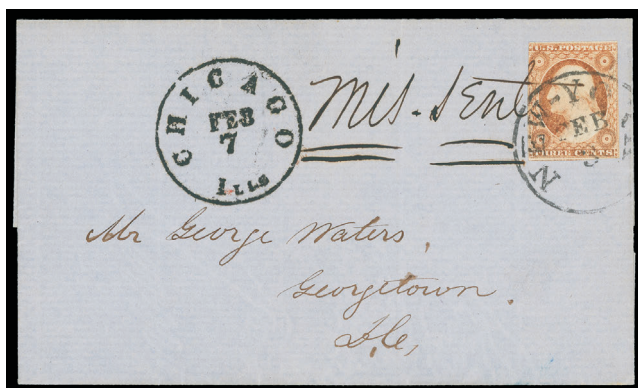 CHICAGO
FEB
7
Ills
Mis-Sent
U.S. POSTAGE
THREE CENTS
NEW-YORK
FEB
3
Mr George Waters,
Georgetown.